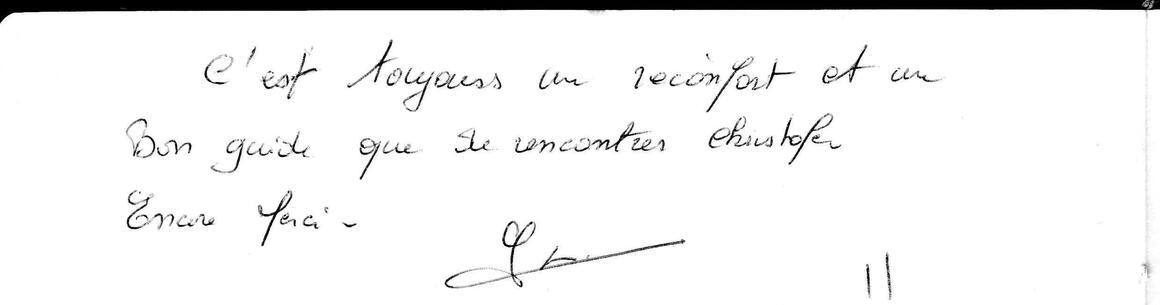 C'est toujours un réconfort et un
Bon guide que de rencontrer Christofer
Encore Merci -